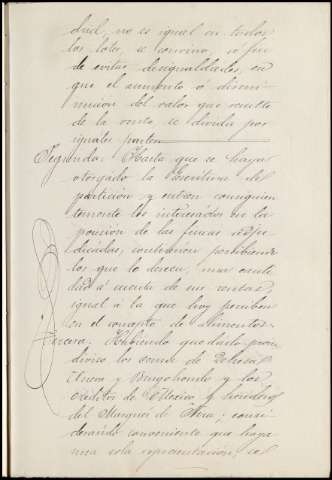 dual, no es igual en todos
los lotes, se convino, á fin
de evitar desigualdades, en
que el aumento o dismi-
nución del valor que resulte
de la venta se divida por
iguales partes
Segunda. Hasta que se haya
otorgado la Escritura de
partición y entren consiguien
temente los interesados en la
posesión de las fincas
dicadas, continúan percibiendo
los que lo deseen, una canti
dad á cuenta de sus rentas,
igual á la que hoy perciben
en el concepto de alimentos.
Tercera. Habiendo quedado proin
diviso los
y Burgohondo y los
créditos de y
del Marqués de ; consi
derando conveniente que haya
una sola representación, se